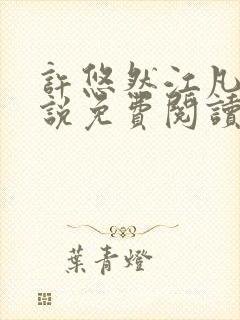 許悠然江凡
說免費閱讀
葉青燈